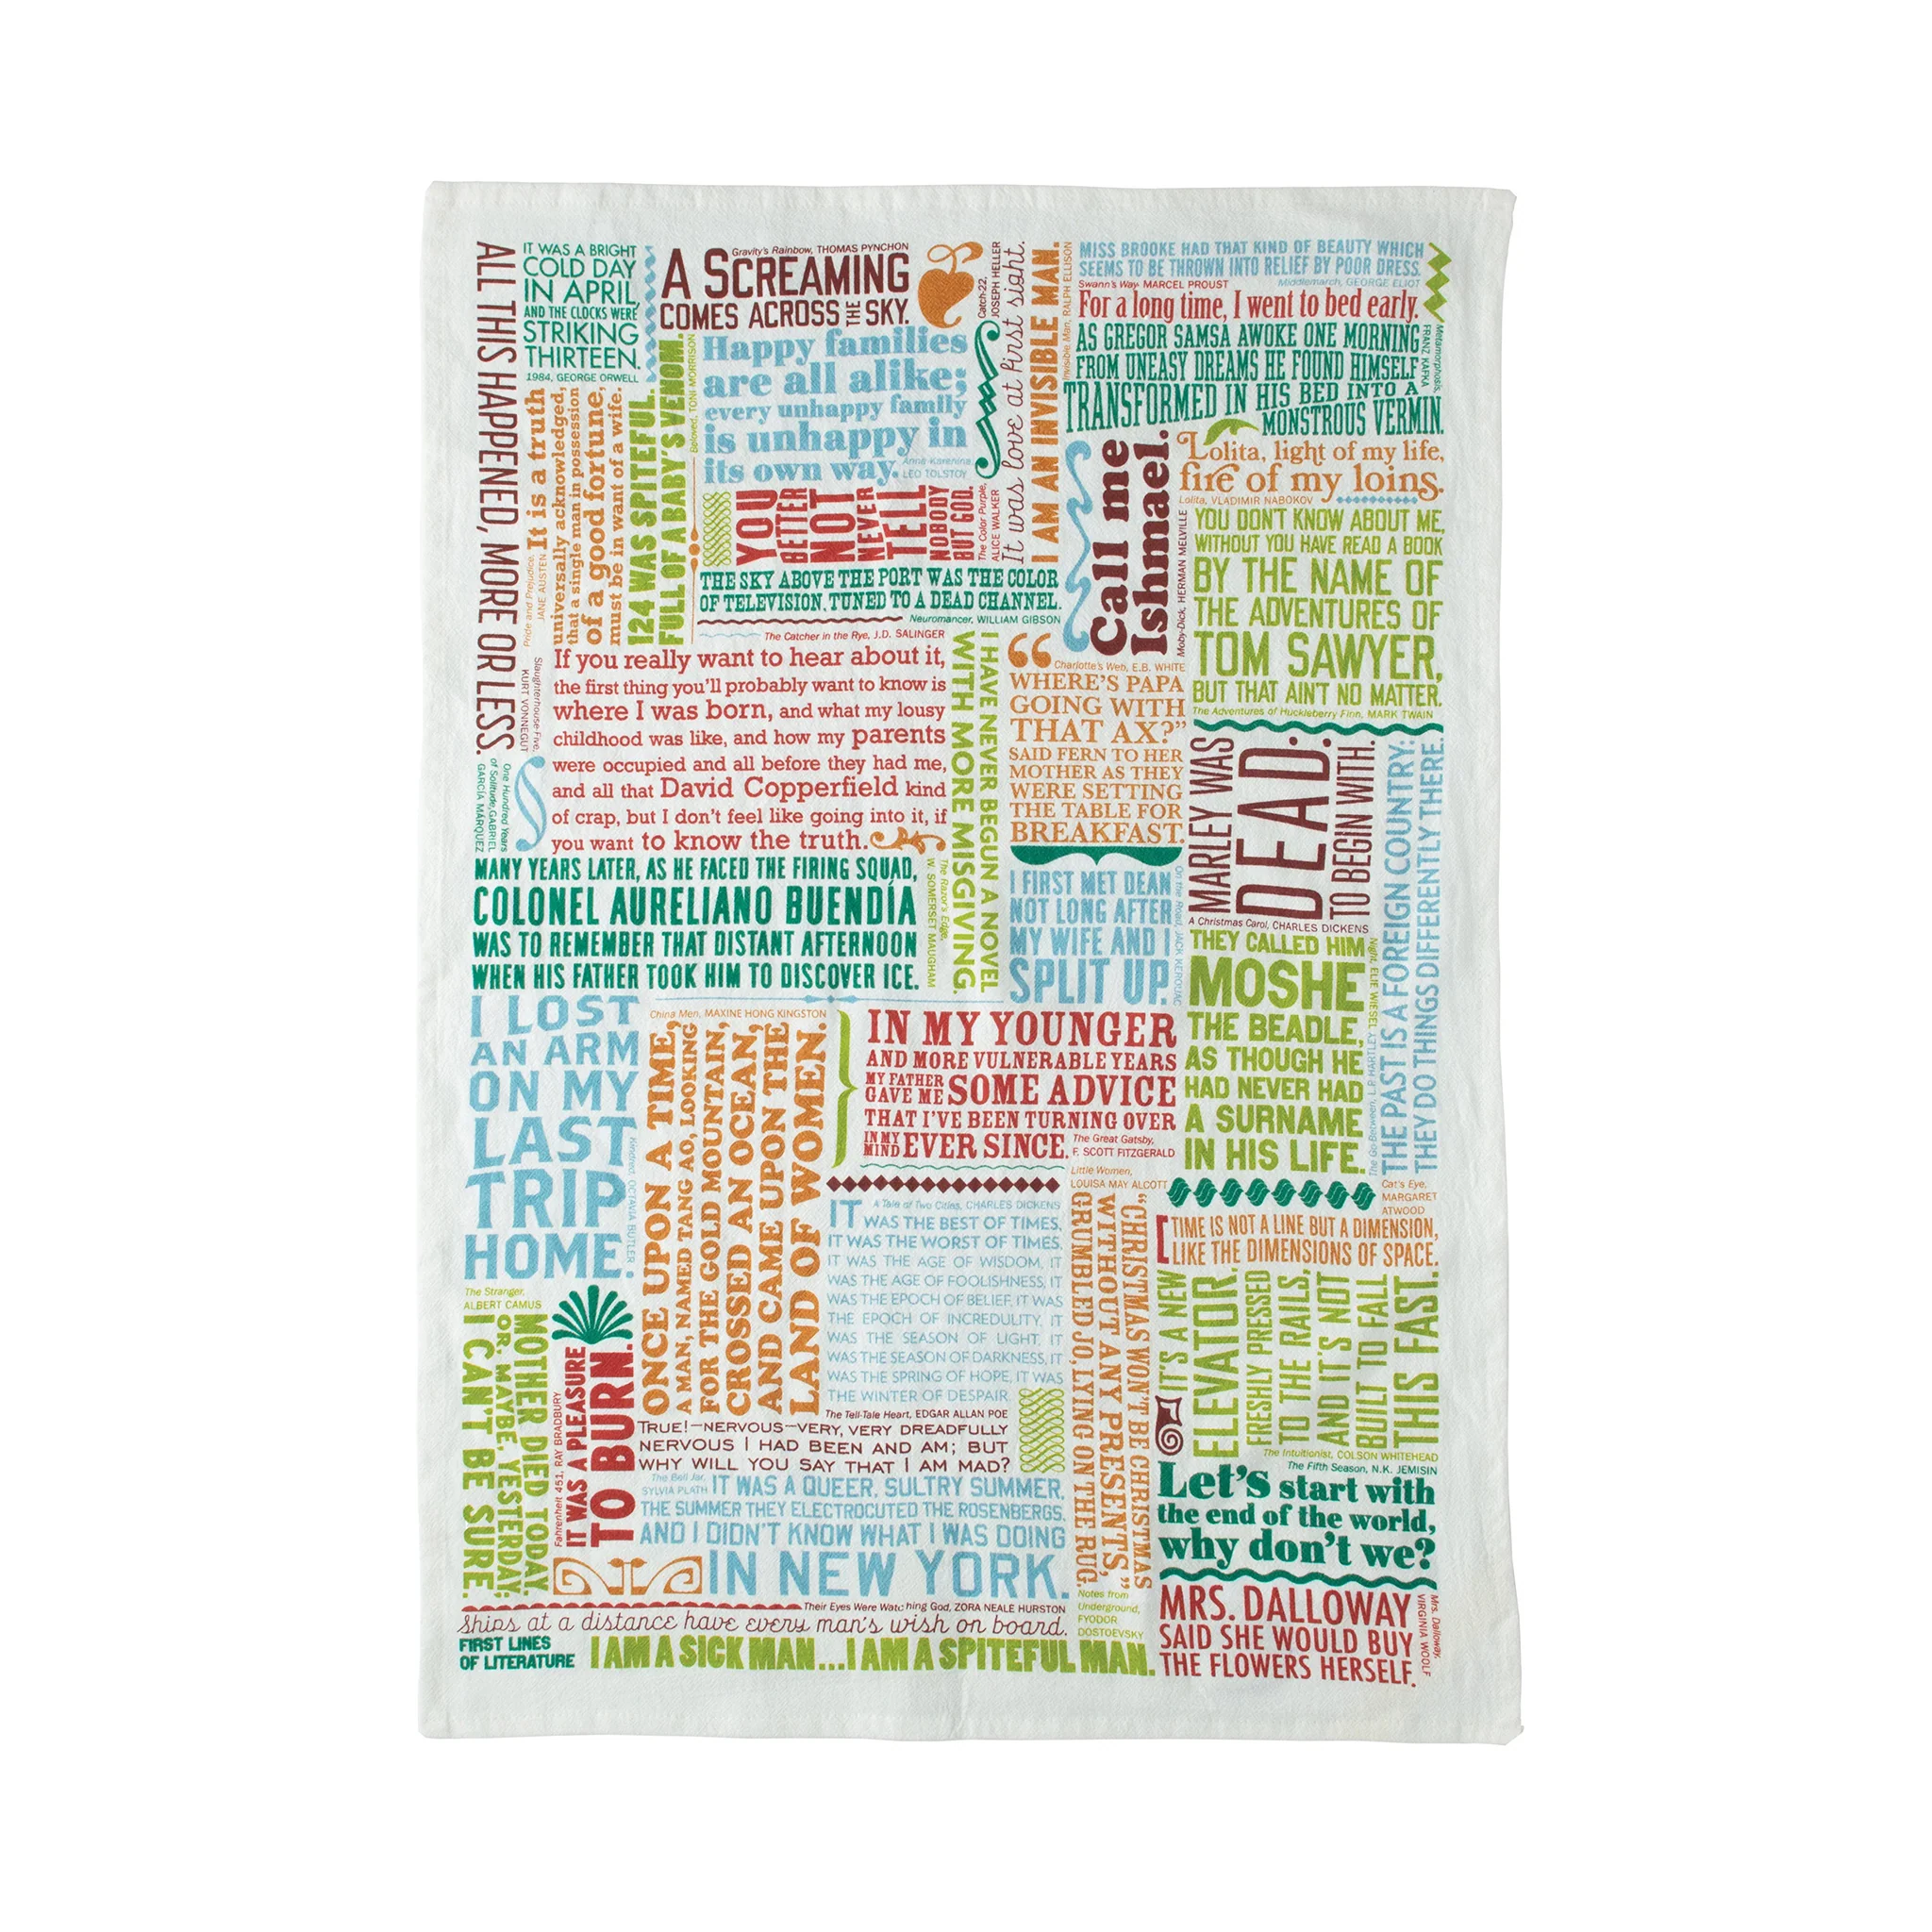 ALL THIS HAPPENED, MORE OR LESS.
Slaughterhouse-Five,
KURT VONNEGUT
IT WAS A BRIGHT
COLD DAY
IN APRIL,
AND THE CLOCKS WERE
STRIKING
THIRTEEN.
1984, GEORGE ORWELL
Gravity's Rainbow, THOMAS PYNCHON
A SCREAMING
COMES ACROSS THE SKY.
Catch-22,
JOSEPH HELLER
It was love at first sight.
I AM AN INVISIBLE MAN.
Invisible Man, RALPH ELLISON
MISS BROOKE HAD THAT KIND OF BEAUTY WHICH
SEEMS TO BE THROWN INTO RELIEF BY POOR DRESS.
Middlemarch, GEORGE ELIOT
Swann's Way, MARCEL PROUST
For a long time, I went to bed early.
AS GREGOR SAMSA AWOKE ONE MORNING
FROM UNEASY DREAMS HE FOUND HIMSELF
TRANSFORMED IN HIS BED INTO A
MONSTROUS VERMIN.
Metamorphosis,
FRANZ KAFKA
Pride and Prejudice,
JANE AUSTEN
It is a truth
universally acknowledged,
that a single man in possession
of a good fortune,
must be in want of a wife.
124 WAS SPITEFUL.
FULL OF A BABY'S VENOM.
Beloved, TONI MORRISON
Happy families
are all alike;
every unhappy family
is unhappy in
its own way.
Anna Karenina
LEO TOLSTOY
YOU
BETTER
NOT
NEVER
TELL
NOBODY
BUT GOD.
The Color Purple,
ALICE WALKER
THE SKY ABOVE THE PORT WAS THE COLOR
OF TELEVISION, TUNED TO A DEAD CHANNEL.
Neuromancer, WILLIAM GIBSON
Call me
Ishmael.
Moby-Dick, HERMAN MELVILLE
Lolita, light of my life,
fire of my loins.
Lolita, VLADIMIR NABOKOV
YOU DON'T KNOW ABOUT ME,
WITHOUT YOU HAVE READ A BOOK
BY THE NAME OF
THE ADVENTURES OF
TOM SAWYER,
BUT THAT AIN'T NO MATTER.
The Adventures of Huckleberry Finn, MARK TWAIN
The Catcher in the Rye, J.D. SALINGER
If you really want to hear about it,
the first thing you'll probably want to know is
where I was born, and what my lousy
childhood was like, and how my parents
were occupied and all before they had me,
and all that David Copperfield kind
of crap, but I don't feel like going into it, if
you want to know the truth.
I HAVE NEVER BEGUN A NOVEL
WITH MORE MISGIVING.
The Razor's Edge,
W. SOMERSET MAUGHAM
“
Charlotte's Web, E.B. WHITE
WHERE'S PAPA
GOING WITH
THAT AX?”
SAID FERN TO HER
MOTHER AS THEY
WERE SETTING
THE TABLE FOR
BREAKFAST.
MARLEY WAS
DEAD:
TO BEGIN WITH.
A Christmas Carol, CHARLES DICKENS
THE PAST IS A FOREIGN COUNTRY:
THEY DO THINGS DIFFERENTLY THERE.
The Go-Between, L.P. HARTLEY
One Hundred Years
of Solitude, GABRIEL
GARCÍA MÁRQUEZ
MANY YEARS LATER, AS HE FACED THE FIRING SQUAD,
COLONEL AURELIANO BUENDÍA
WAS TO REMEMBER THAT DISTANT AFTERNOON
WHEN HIS FATHER TOOK HIM TO DISCOVER ICE.
I FIRST MET DEAN
NOT LONG AFTER
MY WIFE AND I
SPLIT UP.
On the Road, JACK KEROUAC
THEY CALLED HIM
MOSHE
THE BEADLE,
AS THOUGH HE
HAD NEVER HAD
A SURNAME
IN HIS LIFE.
Night, ELIE WIESEL
I LOST
AN ARM
ON MY
LAST
TRIP
HOME.
Kindred, OCTAVIA BUTLER
China Men, MAXINE HONG KINGSTON
ONCE UPON A TIME,
A MAN, NAMED TANG AO, LOOKING
FOR THE GOLD MOUNTAIN,
CROSSED AN OCEAN,
AND CAME UPON THE
LAND OF WOMEN.
IN MY YOUNGER
AND MORE VULNERABLE YEARS
MY FATHER
GAVE ME SOME ADVICE
THAT I'VE BEEN TURNING OVER
IN MY
MIND EVER SINCE.
The Great Gatsby,
F. SCOTT FITZGERALD
Little Women,
LOUISA MAY ALCOTT
“CHRISTMAS WON'T BE CHRISTMAS
WITHOUT ANY PRESENTS,”
GRUMBLED JO, LYING ON THE RUG.
A Tale of Two Cities, CHARLES DICKENS
IT WAS THE BEST OF TIMES,
IT WAS THE WORST OF TIMES,
IT WAS THE AGE OF WISDOM, IT
WAS THE AGE OF FOOLISHNESS, IT
WAS THE EPOCH OF BELIEF, IT WAS
THE EPOCH OF INCREDULITY, IT
WAS THE SEASON OF LIGHT, IT
WAS THE SEASON OF DARKNESS, IT
WAS THE SPRING OF HOPE, IT WAS
THE WINTER OF DESPAIR.
Cat's Eye,
MARGARET
ATWOOD
TIME IS NOT A LINE BUT A DIMENSION,
LIKE THE DIMENSIONS OF SPACE.
IT'S A NEW
ELEVATOR,
FRESHLY PRESSED
TO THE RAILS,
AND IT'S NOT
BUILT TO FALL
THIS FAST.
The Intuitionist, COLSON WHITEHEAD
The Stranger,
ALBERT CAMUS
MOTHER DIED TODAY.
OR, MAYBE, YESTERDAY;
I CAN'T BE SURE.
Fahrenheit 451, RAY BRADBURY
IT WAS A PLEASURE
TO BURN.
The Tell-Tale Heart, EDGAR ALLAN POE
TRUE!—NERVOUS—VERY, VERY DREADFULLY
NERVOUS I HAD BEEN AND AM; BUT
WHY WILL YOU SAY THAT I AM MAD?
The Bell Jar,
SYLVIA PLATH
IT WAS A QUEER, SULTRY SUMMER,
THE SUMMER THEY ELECTROCUTED THE ROSENBERGS,
AND I DIDN'T KNOW WHAT I WAS DOING
IN NEW YORK.
The Fifth Season, N.K. JEMISIN
Let's start with
the end of the world,
why don't we?
Their Eyes Were Watching God, ZORA NEALE HURSTON
Ships at a distance have every man's wish on board.
Notes from
Underground,
FYODOR
DOSTOEVSKY
I AM A SICK MAN...I AM A SPITEFUL MAN.
MRS. DALLOWAY
SAID SHE WOULD BUY
THE FLOWERS HERSELF.
Mrs. Dalloway,
VIRGINIA WOOLF
FIRST LINES
OF LITERATURE